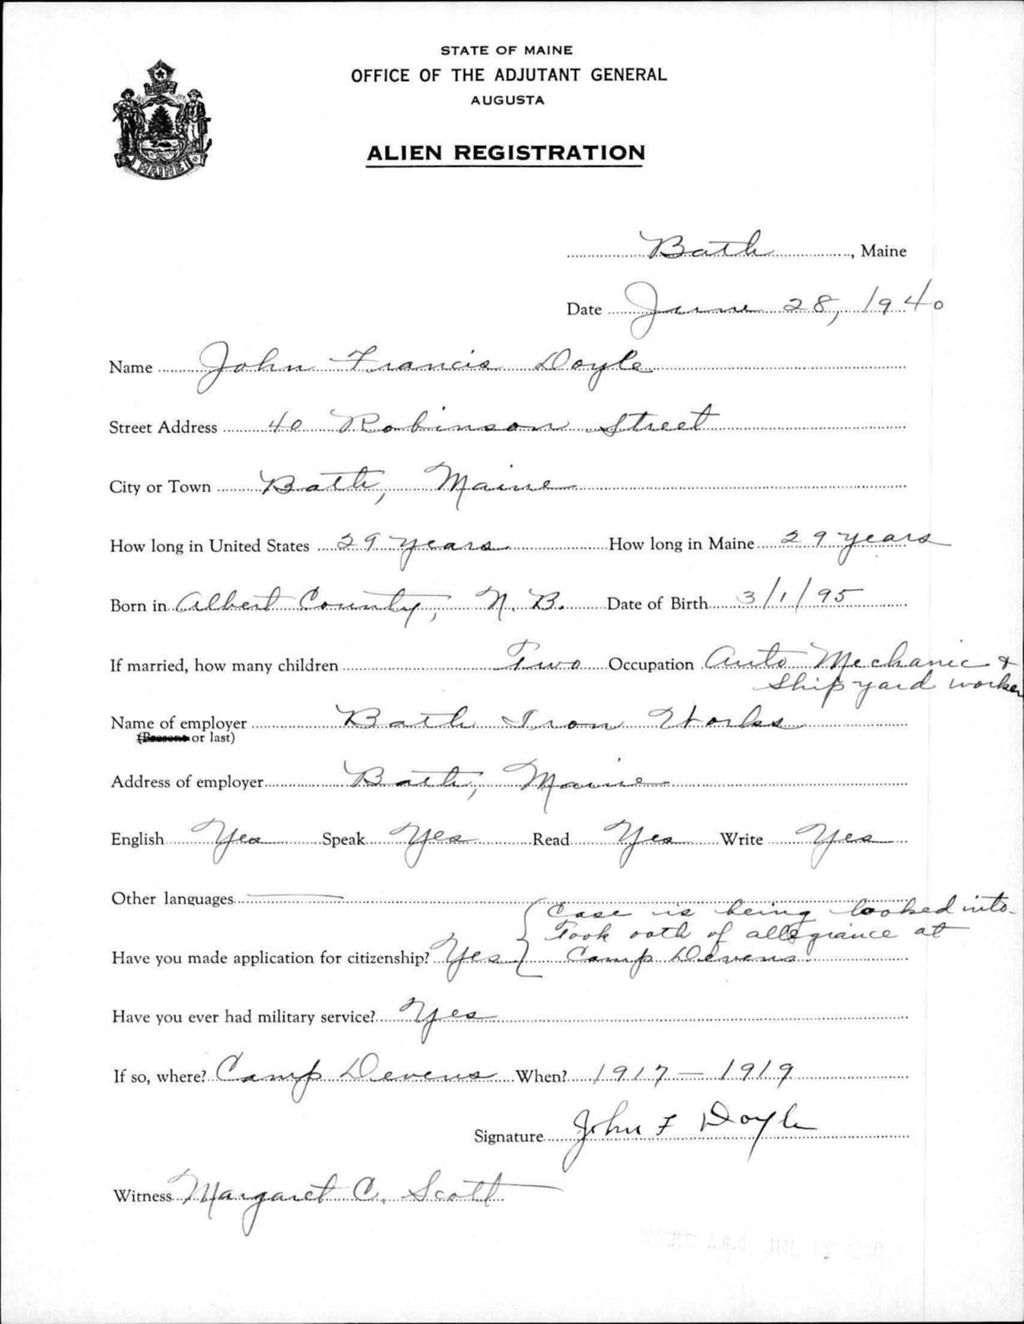 STATE OF MAINE
OFFICE OF THE ADJUTANT GENERAL
AUGUSTA
MAINE
ALIEN REGISTRATION
Bath, Maine
Date June 28, 1940
Name John Francis Doyle
Street Address 40 Robinson Street
City or Town Bath, Maine
How long in United States 29 years How long in Maine 29 years
Born in Albert County, N. B. Date of Birth 3/1/95
If married, how many children Two Occupation Auto Mechanic &
Shipyard worker
Name of employer Bath Iron Works
(Present or last)
Address of employer Bath, Maine
English Yes Speak Yes Read Yes Write Yes
Other languages
Case is being looked into.
Took oath of allegiance at
Have you made application for citizenship? Yes Camp Devens
Have you ever had military service? Yes
If so, where? Camp Devens When? 1917 - 1919
Signature John F Doyle
Witness Margaret C. Scott